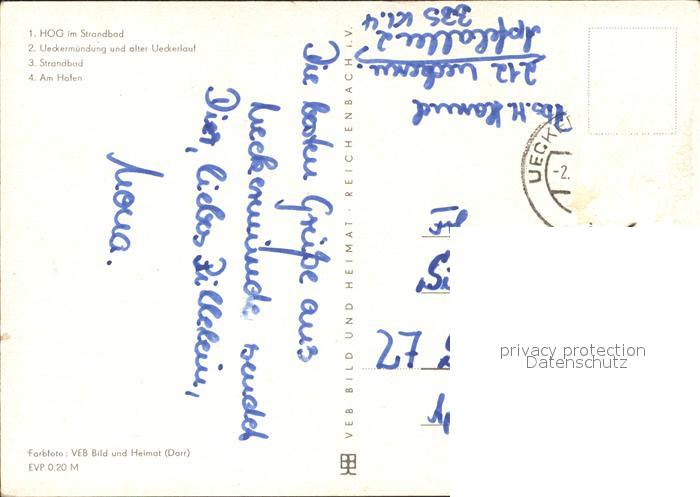 1. HOG im Strandbad
2. Ueckermündung und alter Ueckerlauf
3. Strandbad
4. Am Hafen
Die besten Grüße aus
Ueckermünde sendet
Dir, liebes
Mona.
Farbfoto: VEB Bild und Heimat (Darr)
EVP 0.20 M
VEB BILD UND HEIMAT · REICHENBACH i. V.
Abs. M.
212 Ueckerm.
Apfelallee 2
335 Kl. 4
UECKE
-2.
privacy protection
Datenschutz